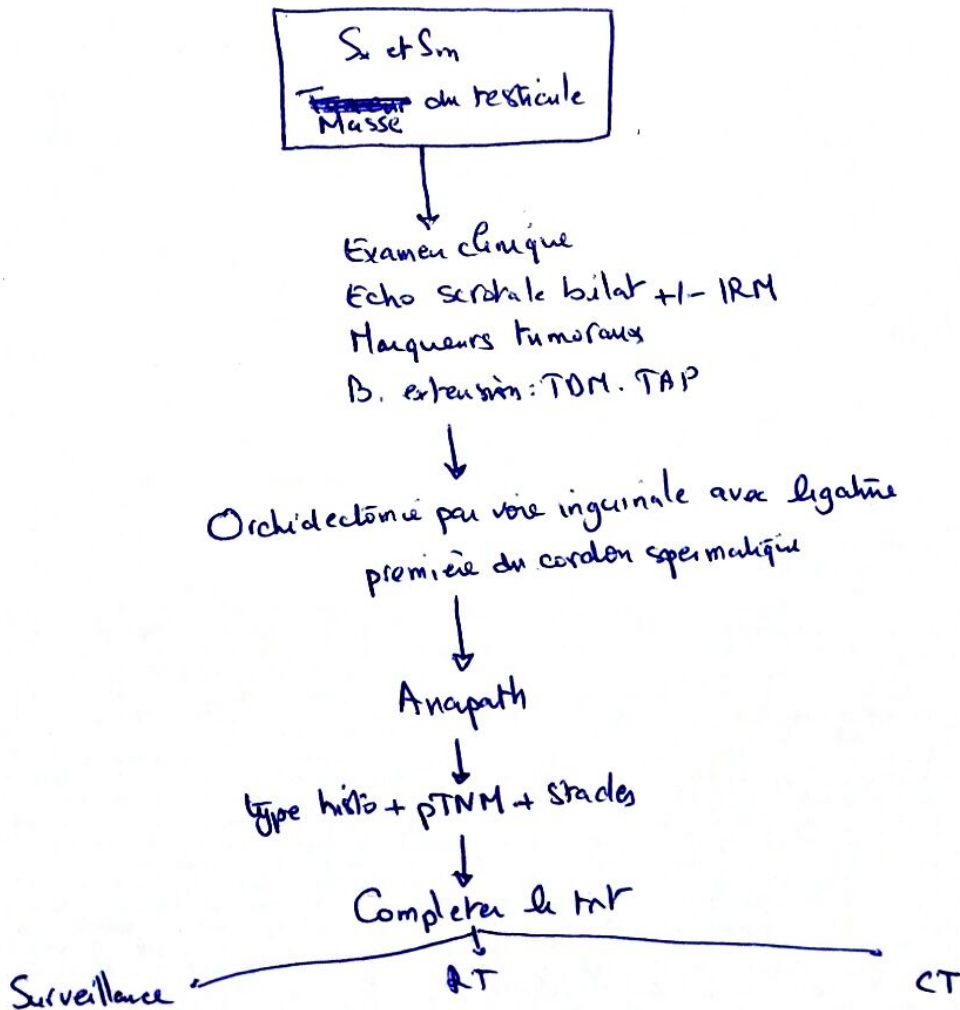 Sx et Sm
Masse du testicule
Examen clinique
Echo scrotale bilat +/- IRM
Marqueurs tumoraux
B. extension : TDM. TAP
Orchidectomie par voie inguinale avec ligature
première du cordon spermatique
Anapath
type histo + pTNM + stades
Completer le tnt
Surveillance RT CT